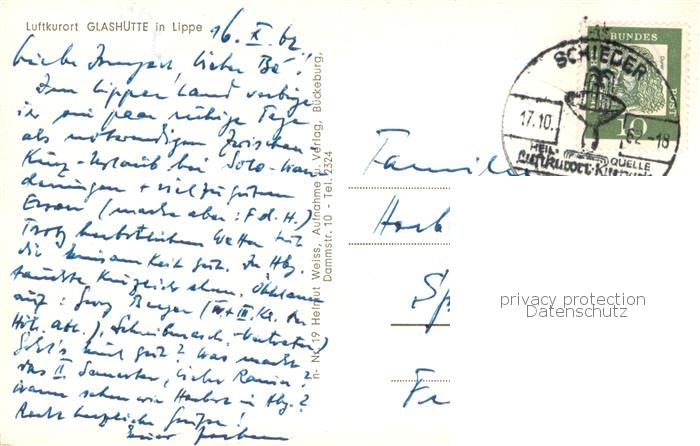 Luftkurort GLASHÜTTE in Lippe
16. X. 62.
Liebe Irmgard, lieber Bé!
Im Lipper Land verbringe
ich ein paar ruhige Tage
als notwendigen Zwischen-
Kurz-Urlaub bei Solo-Wan-
derungen + viel zu gutem
Essen (mache aber: F.d.H.)
Trotz herbstlichem Wetter tut
die Einsamkeit gut. In Hbg.
tauchte kürzlich ein
auf: Georg
Höh. Abt.), Schreibmasch.-Vertreter)
Geht's Euch gut? Was macht
das II. Semester, lieber Rainer?
Wann sehen wir in Hbg.?
Recht herzliche Grüße!
Euer
n- Nr. 19 Helmut Weiss, Aufnahme u. Verlag, Bückeburg,
Dammstr. 10 - Tel. 2324
Familie
BUNDES
POST
10
SCHIEDER
17.10.
62-18
HEIL
QUELLE
Luftkurort-Kneipp
privacy protection
Datenschutz